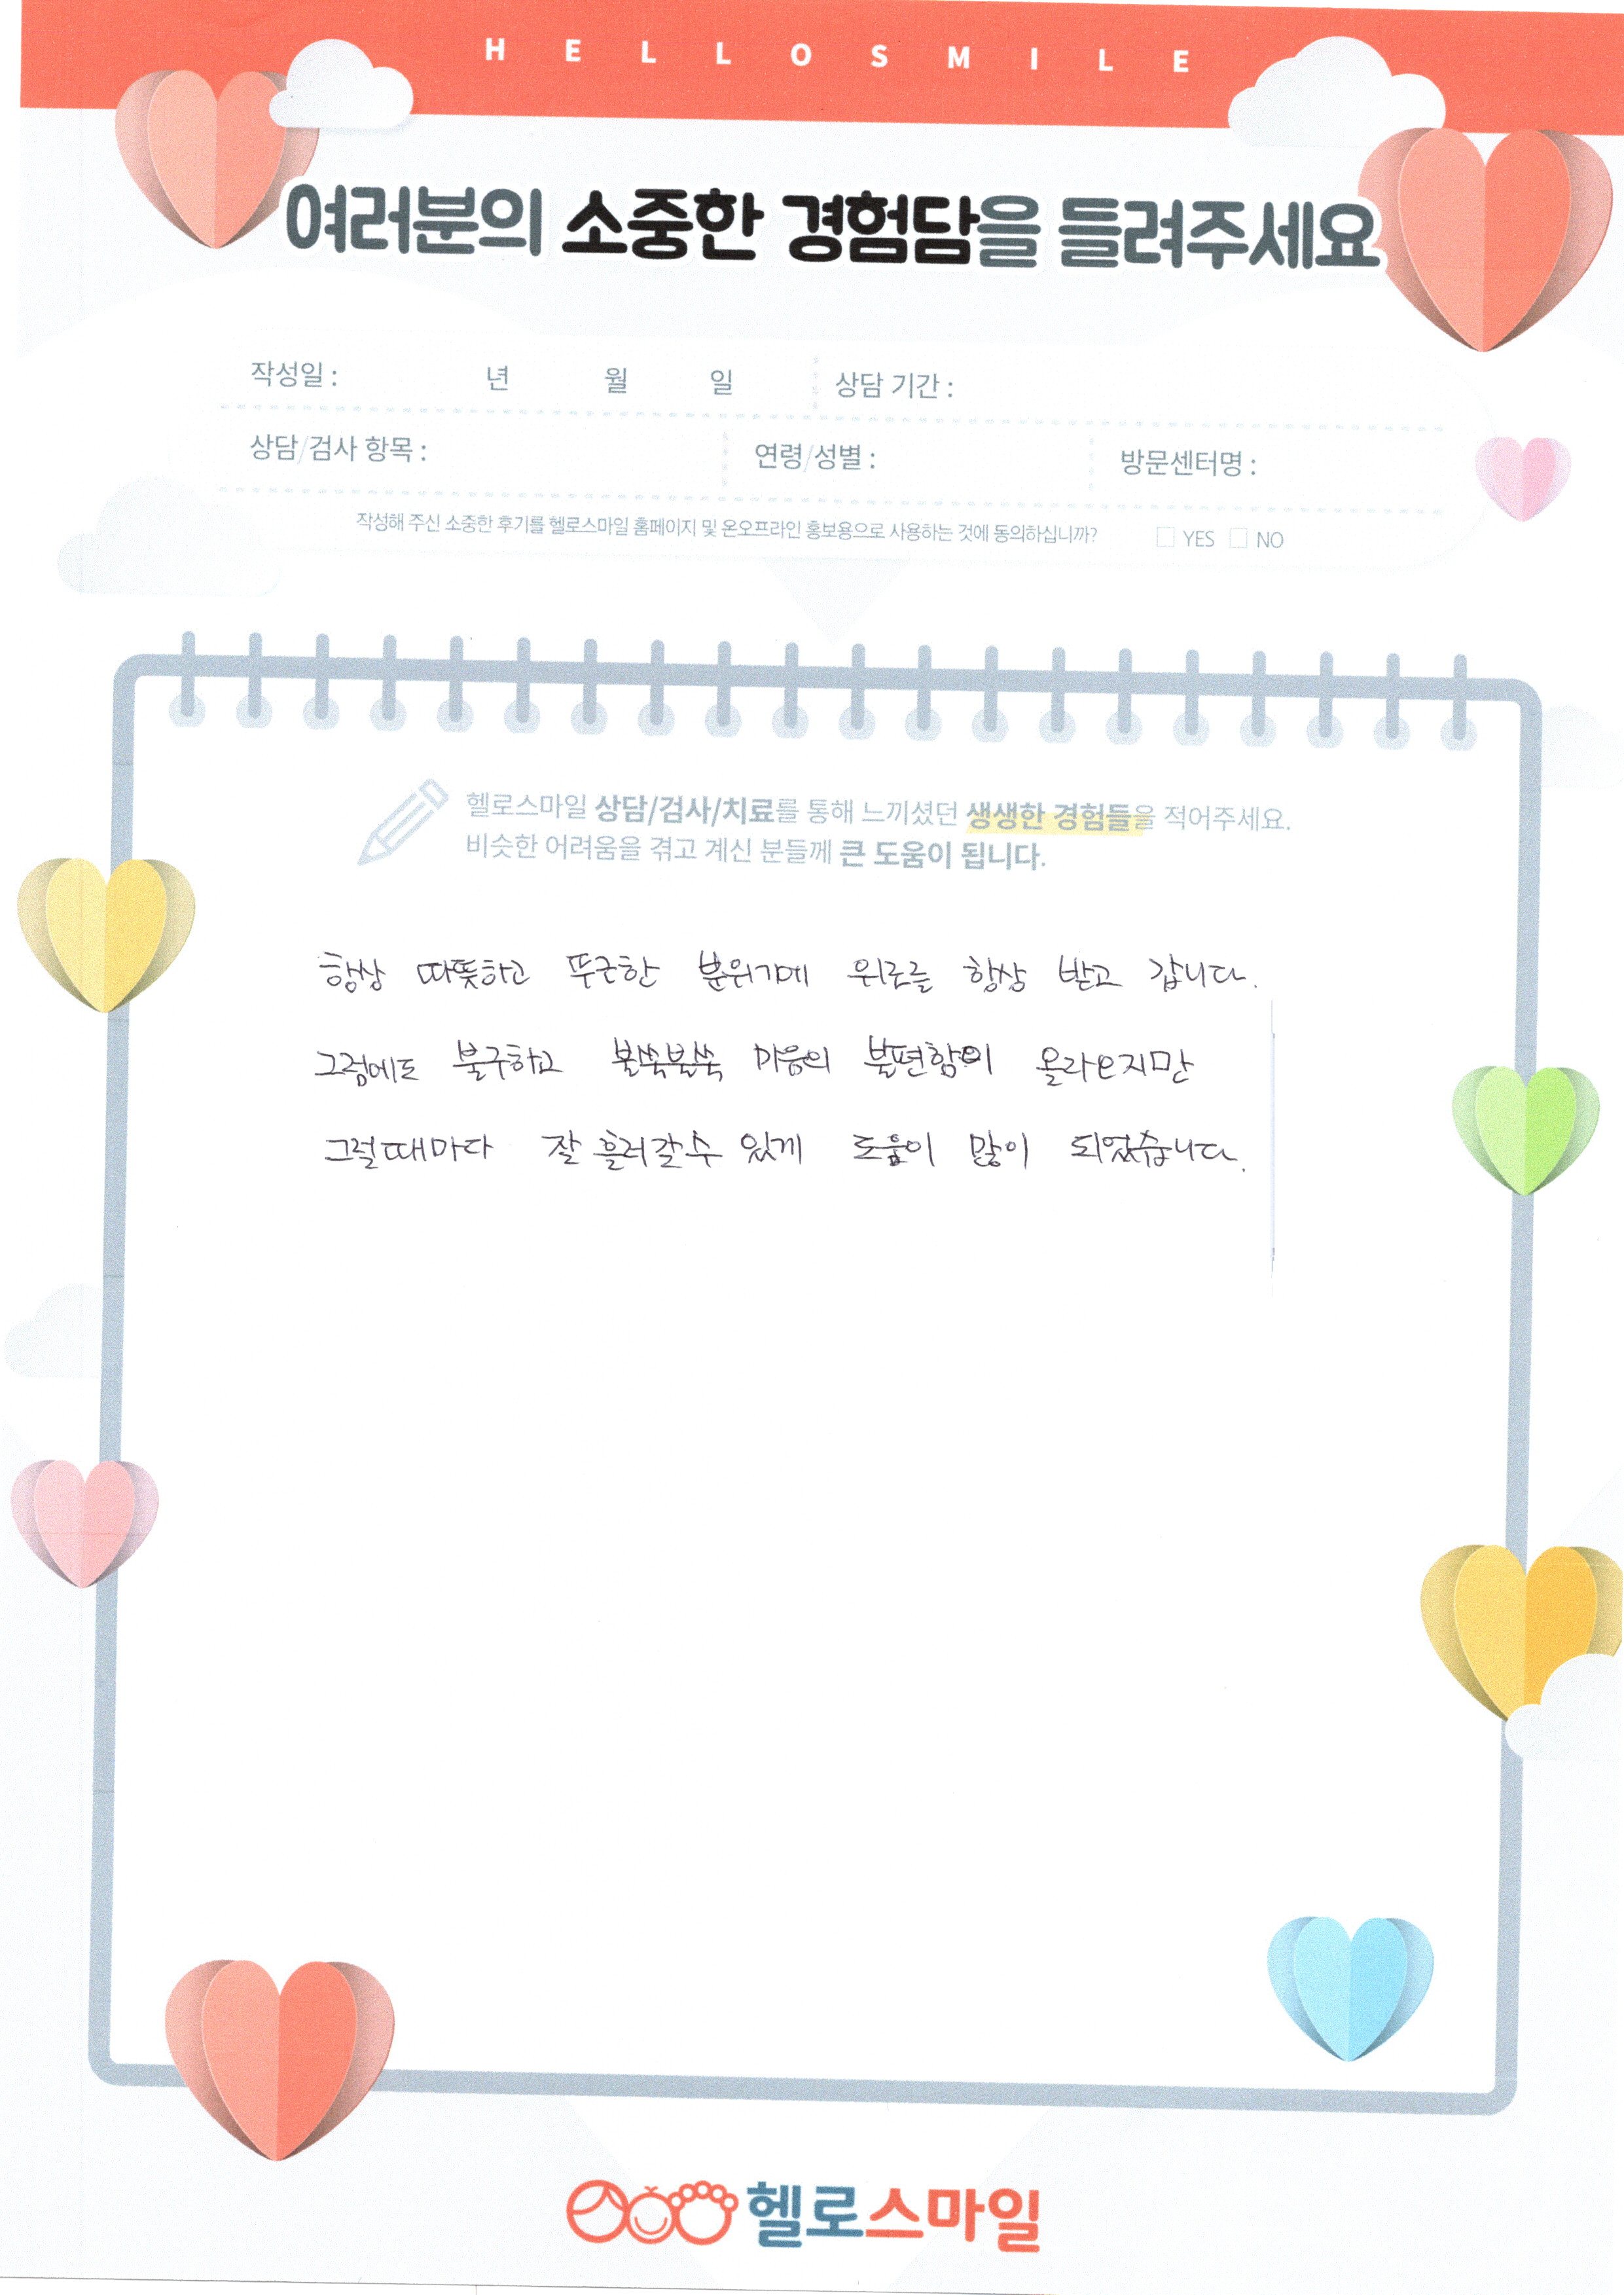 HELLOSMILE
여러분의 소중한 경험담을 들려주세요
작성일 : 년 월 일 상담 기간 :
상담/검사 항목 : 연령/성별 : 방문센터명 :
작성해 주신 소중한 후기를 헬로스마일 홈페이지 및 온오프라인 홍보용으로 사용하는 것에 동의하십니까? YES NO
헬로스마일 상담/검사/치료를 통해 느끼셨던 생생한 경험들을 적어주세요.
비슷한 어려움을 겪고 계신 분들께 큰 도움이 됩니다.
항상 따뜻하고 뚜근한 분위기에 위로를 항상 받고 갑니다.
그럼에도 불구하고 불쑥불쑥 마음의 불편함이 올라오지만
그럴때마다 잘 흘러갈수 있게 도움이 많이 되었습니다.
헬로스마일